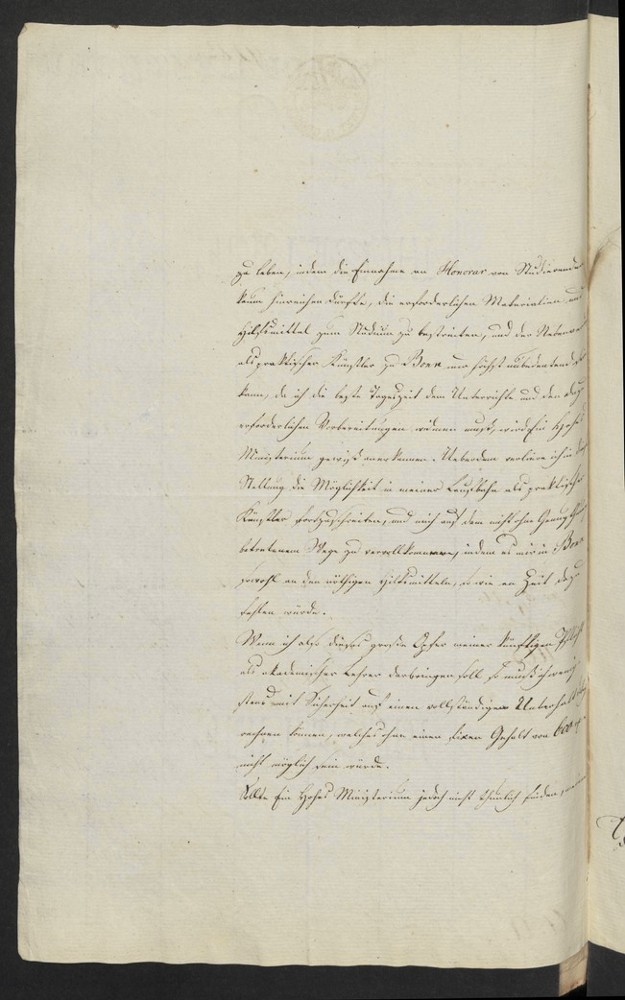 zu leben, indem die Einnahme an Honorar von Studierenden
kaum hinreichen dürfte, die erforderlichen Materialien und
Hilfsmittel zum Studium zu bestreiten, und der Nebenver
als praktischer Künstler zu Bonn nur höchst unbedeutend sein
kann, da ich die beste Tageszeit dem Unterrichte und den dazu
erforderlichen Vorbereitungen widmen muß, wird ein Hohes
Ministerium gewiß anerkennen. Ueberdem verliere ich in dieser
Stellung die Möglichkeit in meiner Laufbahn als praktischer
Künstler fortzuschreiten, und mich auf dem nicht ohne
betretenem Wege zu vervollkommnen, indem es mir in Bonn
sowohl an den nöthigen Hilfsmitteln, so wie an Zeit dazu
fehlen würde.
Wenn ich also dieses große Opfer meiner künftigen Pflicht
als akademischer Lehrer darbringen soll so muß ich wenig
stens mit Sicherheit auf einen vollständigen Unterhalt
rechnen können, welches ohne einen fixen Gehalt von 600
nicht möglich sein würde.
Sollte Ein Hohes Ministerium jedoch nicht thunlich finden,